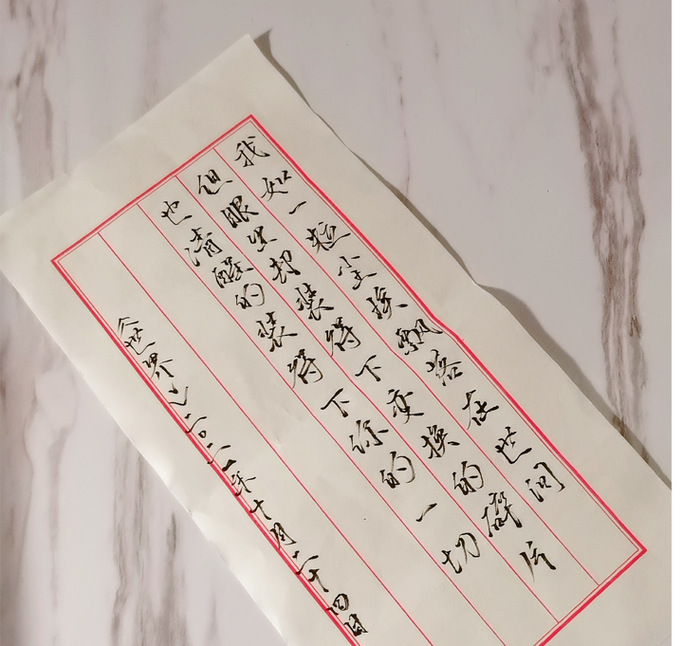 我如一粒尘埃飘落在世间
但眼里却装得下变换的碎片
也清醒的装得下你的一切
《世界》二〇二一年十月二十四日